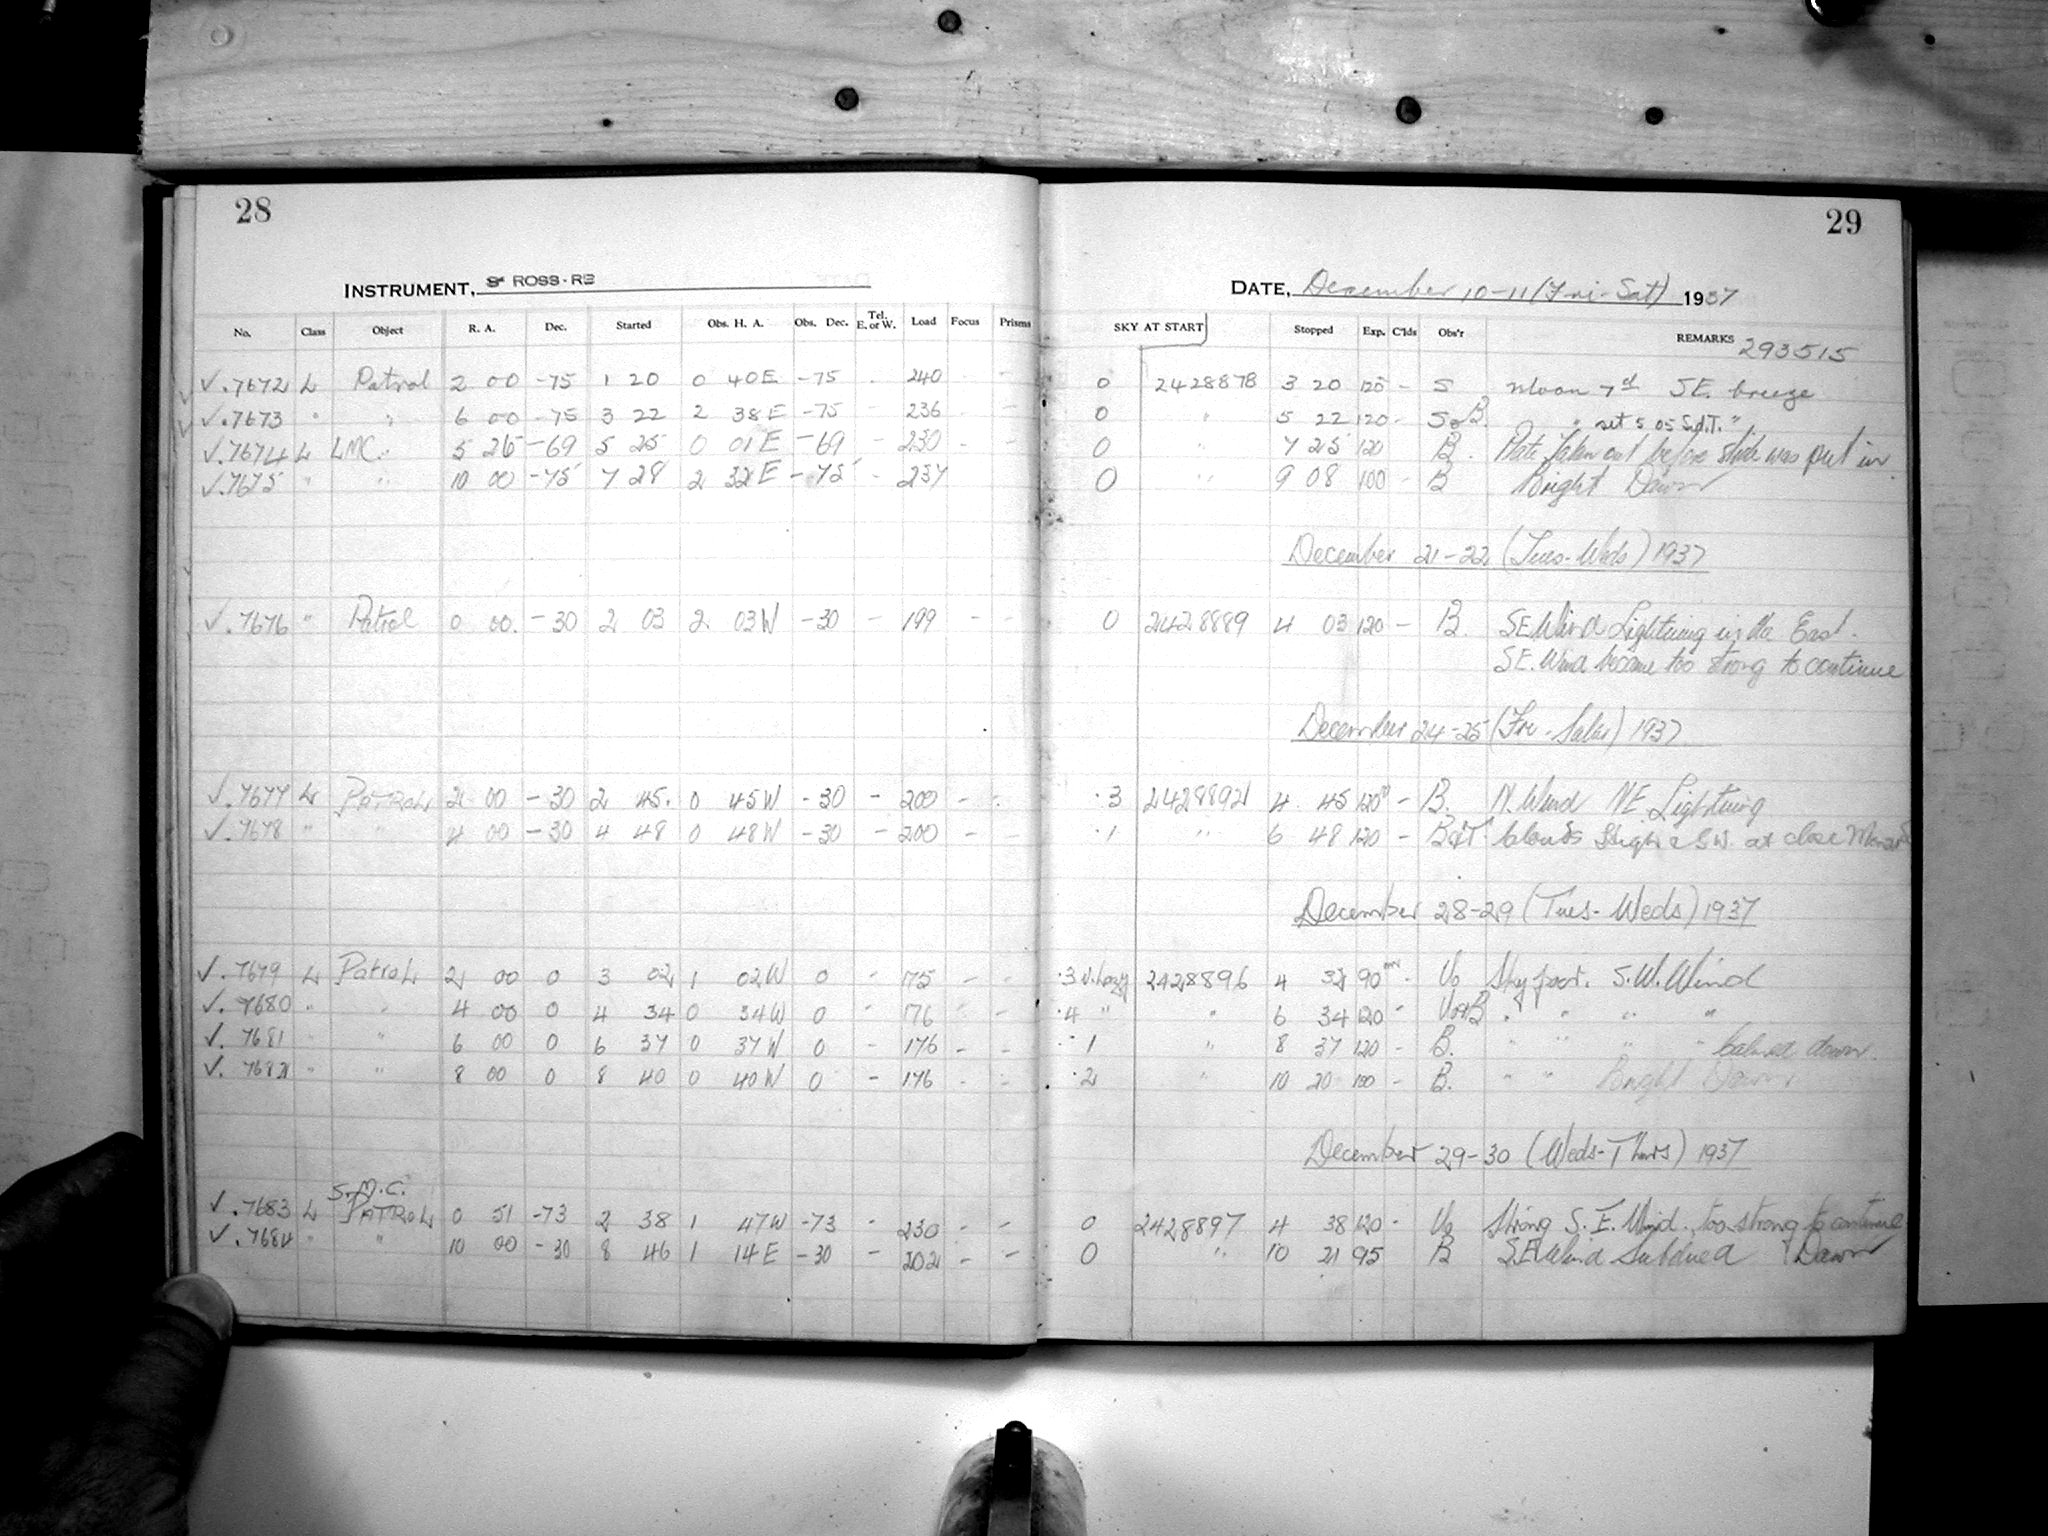 28
INSTRUMENT, 3" ROSS-RB
No. Class Object R. A. Dec. Started Obs. H. A. Obs. Dec. Tel. E. or W. Load Focus Prisms
✓.7672 L Patrol 2 00 -75 1 20 0 40E -75 - 240 - -
✓.7673 " " 6 00 -75 3 22 2 38E -75 - 236 - -
✓.7674 L LMC " 5 26 -69 5 25 0 01E -69 - 230 - -
✓.7675 " " 10 00 -75 7 28 2 32E -75 - 237 - -
✓.7676 " Patrol 0 00 -30 2 03 2 03W -30 - 199 - -
✓.7677 L PATROL 2 00 -30 2 45 0 45W -30 - 200 - -
✓.7678 " " 4 00 -30 4 48 0 48W -30 - 200 - -
✓.7679 L Patrol 2 00 0 3 02 1 02W 0 - 175 - -
✓.7680 " " 4 00 0 4 34 0 34W 0 - 176 - -
✓.7681 " " 6 00 0 6 37 0 37W 0 - 176 - -
✓.7682 " " 8 00 0 8 40 0 40W 0 - 176 - -
S.M.C.
✓.7683 L PATROL 0 51 -73 2 38 1 47W -73 - 230 - -
✓.7684 " " 10 00 -30 8 46 1 14E -30 - 202 - -
29
DATE, December 10-11 (Fri-Sat) 1937
SKY AT START Stopped Exp. C'lds Obs'r REMARKS 293515
0 2428878 3 20 120 - S Moon 7d SE. breeze
0 " 5 22 120 - S&B. " set 5 05 Sid.T. "
0 " 7 25 120 B. Plate taken out before slide was put in
0 " 9 08 100 - B Bright Dawn
December 21-22 (Tues-Weds) 1937
0 2428889 4 03 120 - B. SE Wind Lightning in the East.
SE. Wind became too strong to continue
December 24-25 (Fri-Satur) 1937
.3 2428892 4 45 120 - B. N. Wind NE Lightning
.1 " 6 48 120 - B&T Clouds S.W. at close
December 28-29 (Tues-Weds) 1937
.3 v.hazy 2428896 4 32 90 - Vo Sky poor. S.W. Wind
.4 " " 6 34 120 - Vo&B " " " "
.1 " 8 37 120 - B. " " " " calmed down.
.2 " 10 20 100 - B. " " Bright Dawn
December 29-30 (Weds-Thurs) 1937
0 2428897 4 38 120 - Vo Strong S.E. Wind. too strong to continue
0 " 10 21 95 B S.E Wind Subdued Dawn